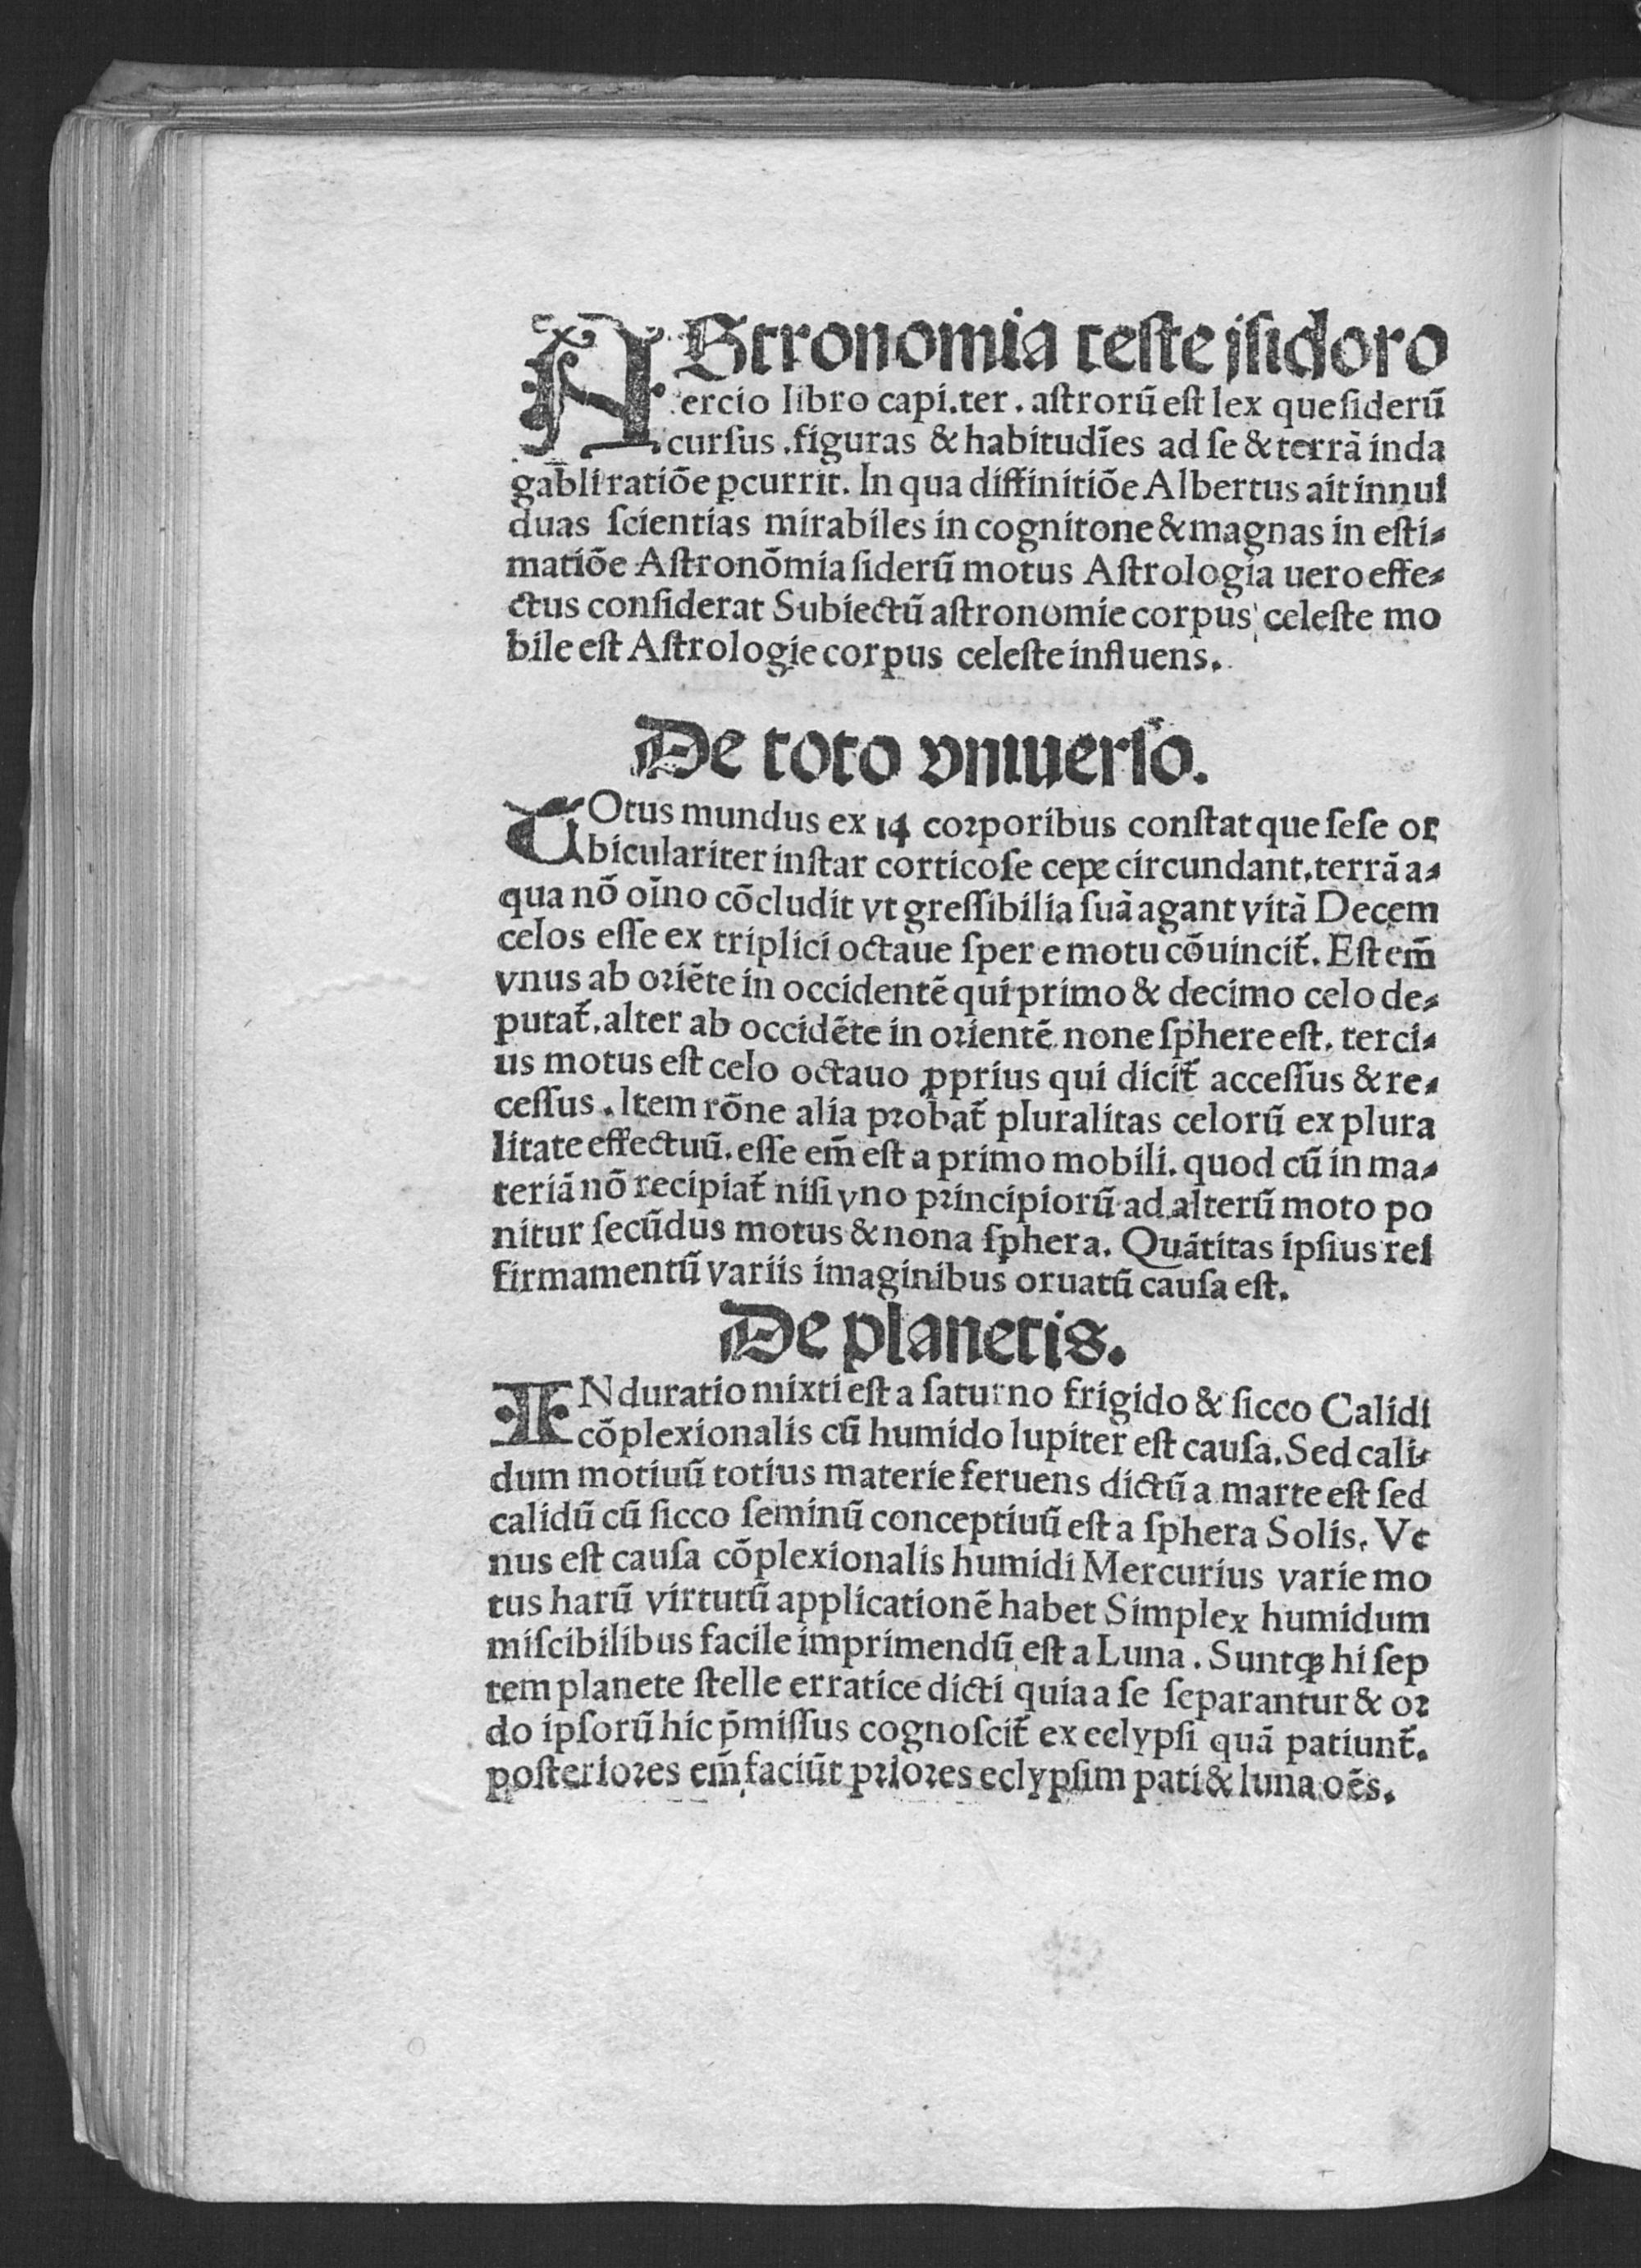 AStronomia teste jsidoro
tercio libro capi.ter. astrorū est lex que siderū
cursus .figuras & habitudīes ad se & terrā inda
gabli ratiōe ꝑcurrit. In qua diffinitiōe Albertus ait innui
duas scientias mirabiles in cognitone & magnas in esti⸗
matiōe Astronōmia siderū motus Astrologia uero effe⸗
ctus considerat Subiectū astronomie corpus celeste mo
bile est Astrologie corpus celeste influens.
De toto vniuerso.
TOtus mundus ex 14 corporibus constat que sese or
biculariter instar corticose cepe circundant. terrā a⸗
qua nō oīno cōcludit vt gressibilia suā agant vitā Decem
celos esse ex triplici octaue spere motu cōuincit̄. Est em̄
vnus ab oriēte in occidentē qui primo & decimo celo de⸗
putat̄. alter ab occidēte in orientē none sphere est. terci⸗
us motus est celo octauo ꝓprius qui dicit̄ accessus & re⸗
cessus. Item rōne alia probat̄ pluralitas celorū ex plura
litate effectuū. esse em̄ est a primo mobili. quod cū in ma⸗
teriā nō recipiat̄ nisi vno principiorū ad alterū moto po
nitur secūdus motus & nona sphera. Quātitas ipsius rei
firmamentū variis imaginibus oruatū causa est.
De planetis.
INduratio mixti est a saturno frigido & sicco Calidi
cōplexionalis cū humido Iupiter est causa. Sed cali⸗
dum motiuū totius materie feruens dictū a marte est sed
calidū cū sicco seminū conceptiuū est a sphera Solis. Ve
nus est causa cōplexionalis humidi Mercurius varie mo
tus harū virtutū applicationē habet Simplex humidum
miscibilibus facile imprimendū est a Luna. Suntqꝫ hi sep
tem planete stelle erratice dicti quia a se separantur & or
do ipsorū hic p̄missus cognoscit̄ ex eclypsi quā patiunt̄.
posteriores em̄ faciūt priores eclypsim pati & luna oēs.